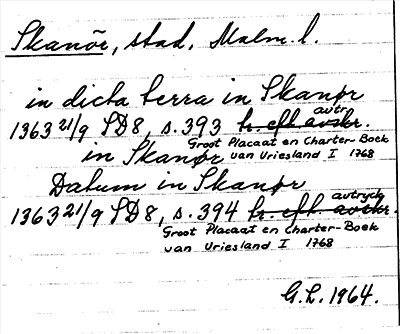 Skanör, stad, Malm. l.
in dicta terra in Skanør
avtr.
1363 21/9 SD8, s. 393 tr. efl. avskr.
Groot Placaat en Charter-Boek
in Skanør van Vriesland I 1768
Datum in Skanør
avtryck
1363 21/9 SD8, s. 394 tr. efl. avskr.
Groot Placaat en Charter-Boek
van Vriesland I 1768
G.L. 1964.